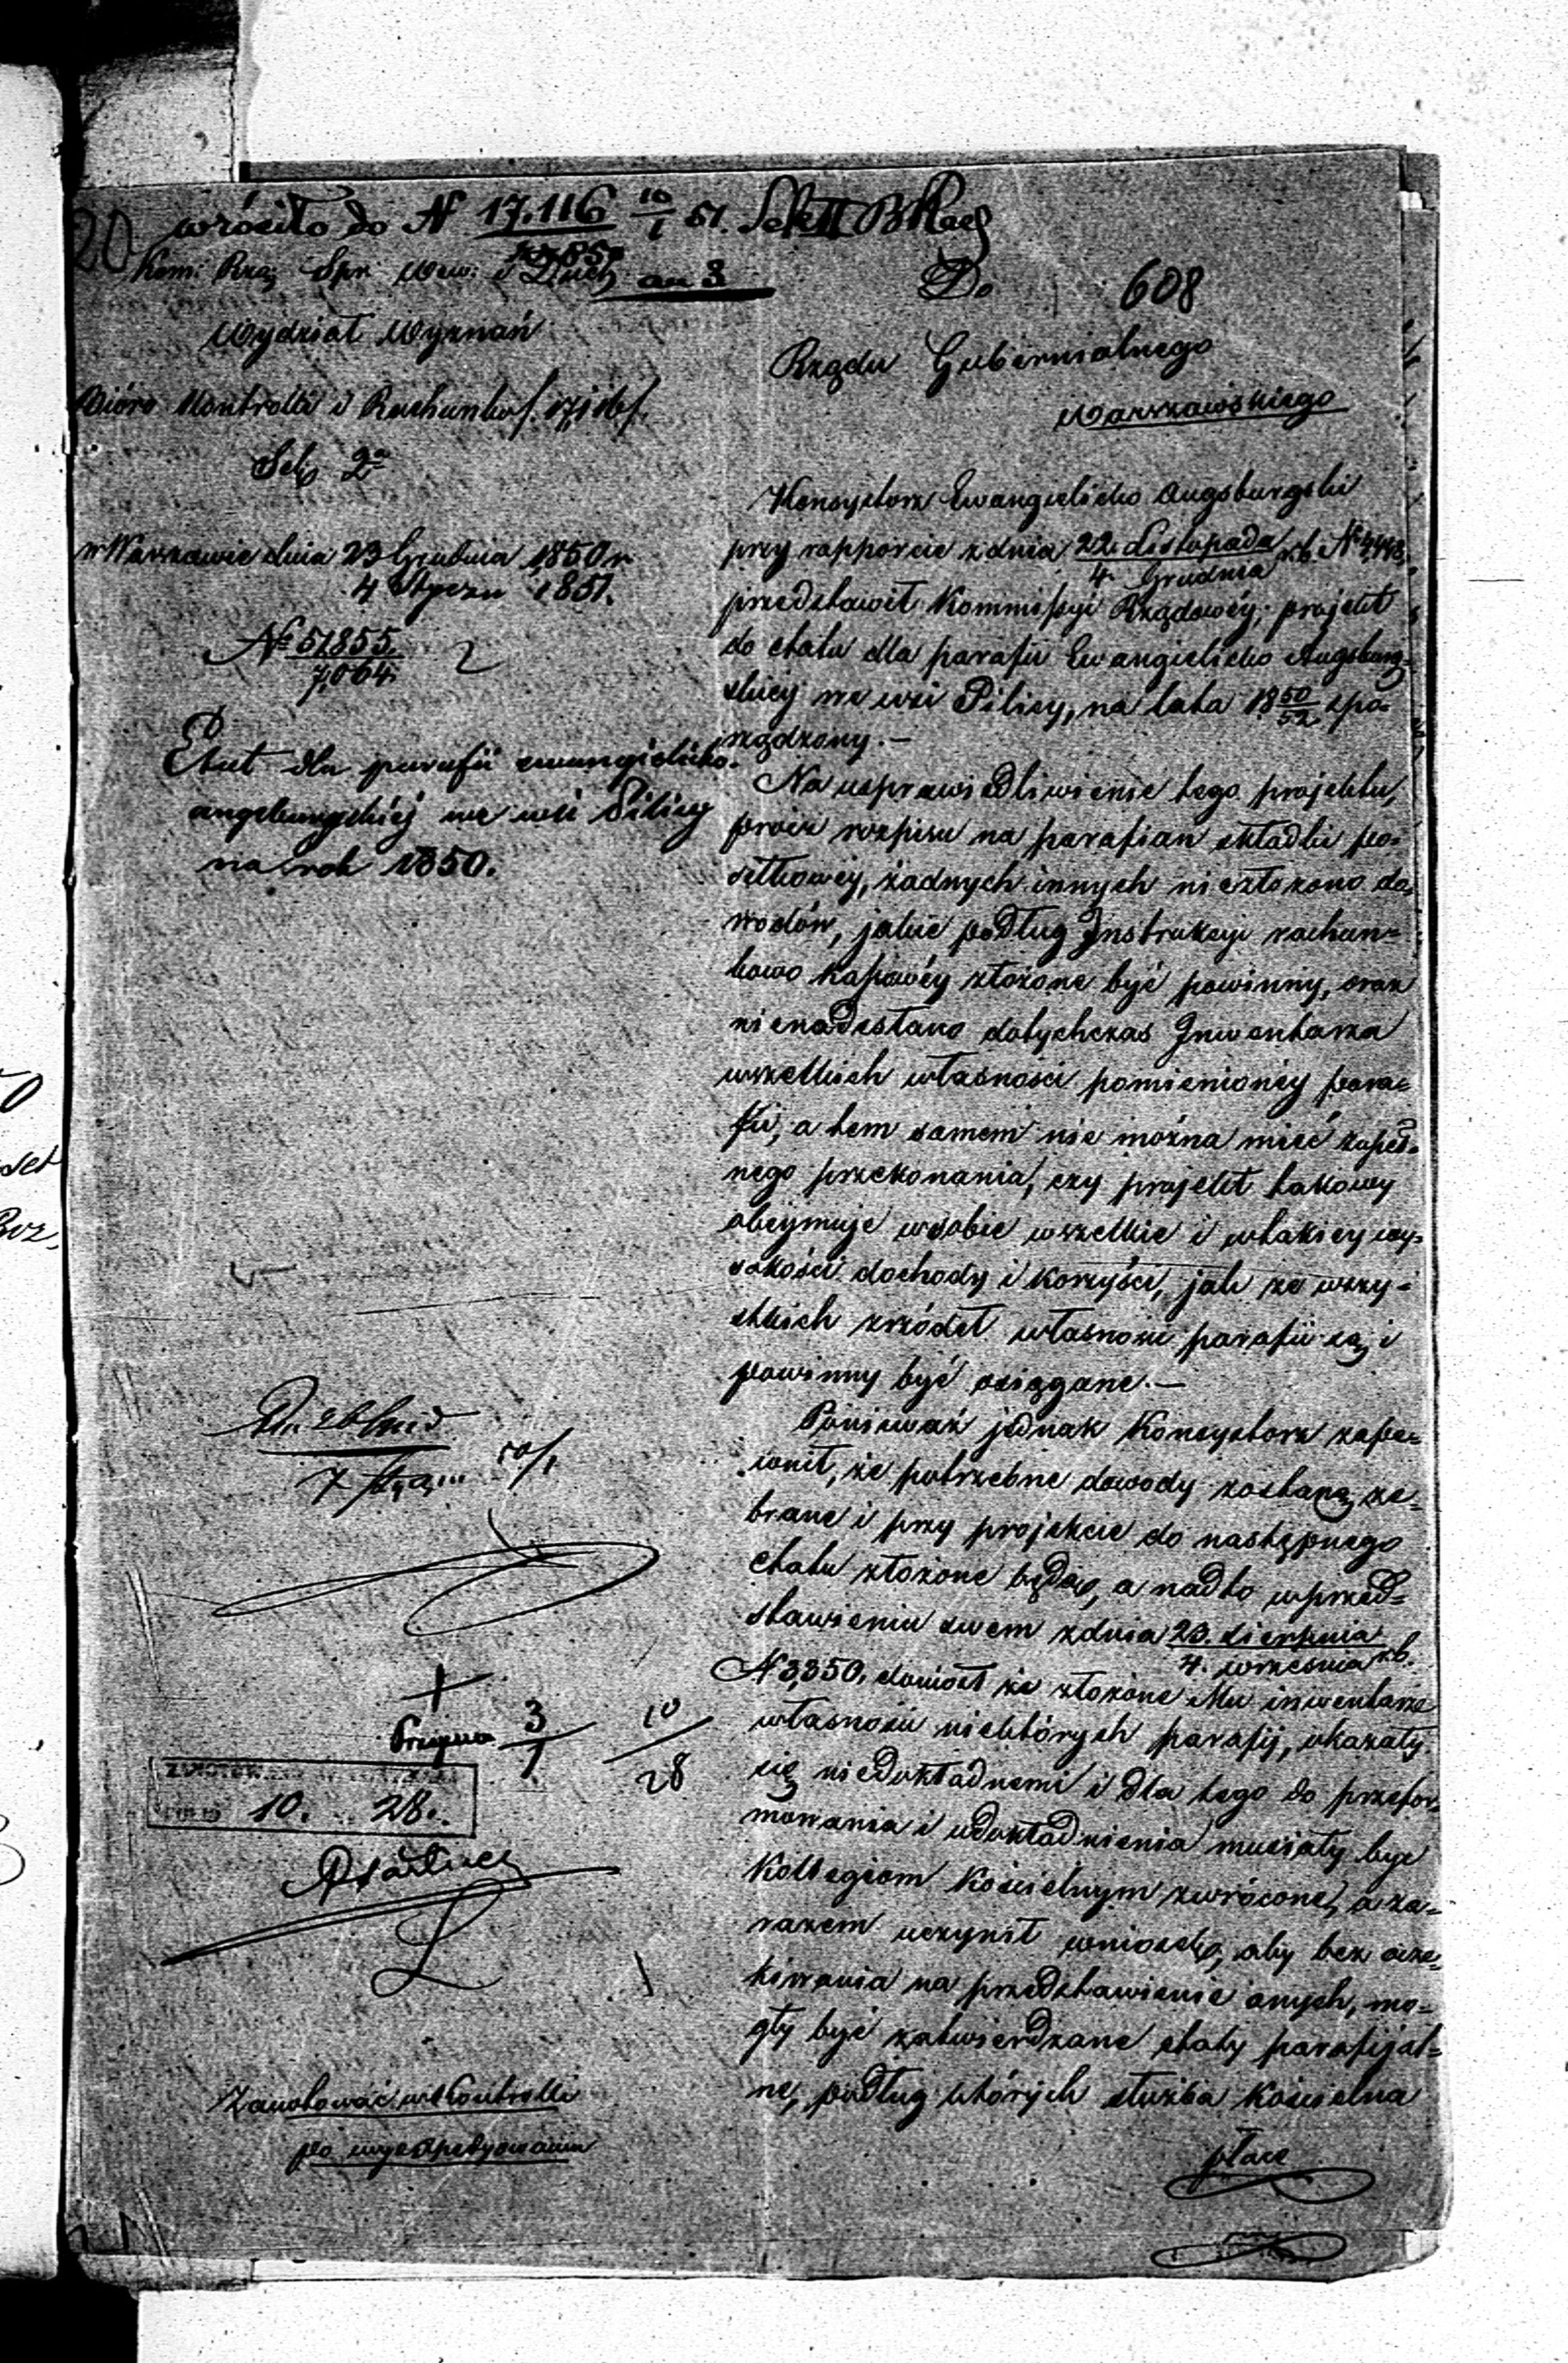 wróciło do N 17.116 10/1 51.
Kom: Rzą: Spr: Wew: i Duch:
Wydział Wyznań
Bióro Kontrolli i Rachunkof. 17,116/.
Sek 2a
w Warszawie dnia 23 Grudnia 1850 r
4 Styczn 1851.
N 51855.
7,064.
2
Etat dla parafii ewangielicko-
augsburgskiéj we wsi Pilicy
na rok 1850.
10/1
3/1
10/28
10. 28.
Zanotować w Kontrolli
po wyexpedyowaniu
Do 608
Rządu Gubernialnego
Warszawskiego
Konsystorz Ewangielicko Augsburgski
przy rapporcie z dnia 22. Listopada
4. Grudnia rb. N 4,448.
przedstawił Kommissyi Rządowéy, projekt
do etatu dla parafii Ewangielicko Augsburg-
skiey we wsi Pilicy, na lata 1850/52 spo-
rządzony.—
Na usprawiedliwienie tego projektu,
prócz rozpisu na parafian składki po-
siłkowéy, żadnych innych niezłożono do-
wodów, jakie podług Instrukcyi rachun-
kowo kassowéy złożone być powinny, oraz
nienadesłano dotychczas Inwentarza
wszelkich własności pomienionéy para-
fii, a tem samem nie można mieć zupeł-
nego przekonania, czy projekt takowy
obeymuje w sobie wszelkie i w takiey wy-
sokości dochody i korzyści, jak ze wszy-
stkich źrzódeł własności parafii są i
powinny być osiągane.—
Ponieważ jednak Konsystorz zape-
wnił, że potrzebne dowody zostaną ze-
brane i przy projekcie do następnego
etatu złożone będą, a nadto w przed-
stawieniu swem z dnia 23. Sierpnia
4. września rb.
N 3,350. doniósł że złożone Mu inwentarze
własności niektórych parafij, okazały
się niedokładnemi i dla tego do przefor-
mowania i udokładnienia musiały być
Kollegiom Kościelnym zwrócone, a za-
razem uczynił wniosek, aby bez ocze-
kiwania na przedstawienie onych, mo-
gły być zatwierdzane etaty parafijal-
ne, podług których służba Kościelna
płace